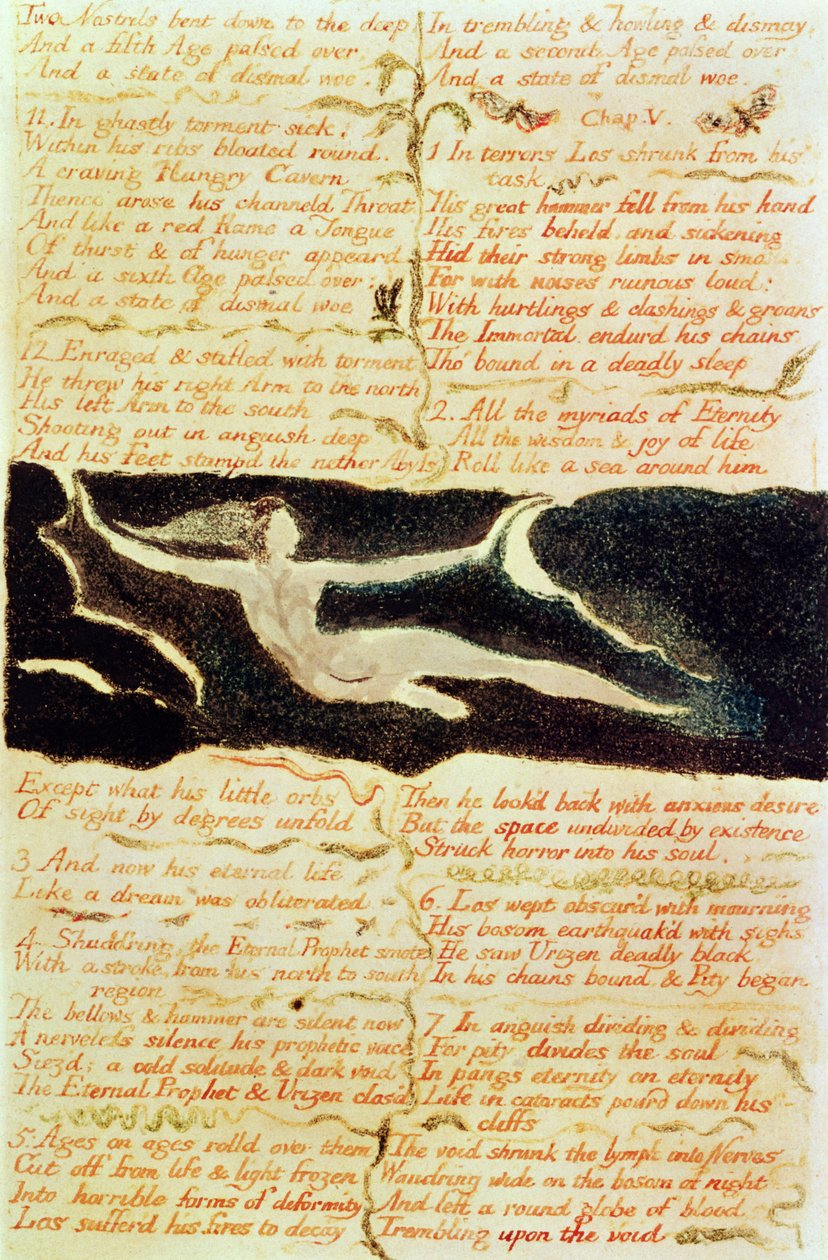 Two Nostrils bent down to the deep
And a fifth Age paſsed over
And a state of dismal woe.
11. In ghastly torment sick;
Within his ribs bloated round.
A craving Hungry Cavern
Thence arose his channeld Throat
And like a red flame a Tongue
Of thirst & of hunger appeard
And a sixth Age paſsed over:
And a state of dismal woe
12. Enraged & stifled with torment
He threw his right Arm to the north
His left Arm to the south
Shooting out in anguish deep
And his feet stampd the nether Abyſs
In trembling & howling & dismay.
And a second Age paſsed over
And a state of dismal woe.
Chap. V.
1 In terrors Los shrunk from his
task
His great hammer fell from his hand
His fires beheld, and sickening
Hid their strong limbs in
For with noises ruinous loud:
With hurtlings & clashings & groans
The Immortal endurd his chains.
Tho bound in a deadly sleep
2. All the myriads of Eternity
All the wisdom & joy of life
Roll like a sea around him
Except what his little orbs
Of sight by degrees unfold
3 And now his eternal life
Like a dream was obliterated
4. Shudd'ring, the Eternal Prophet smote
With a stroke, from his north to south
region
The bellows & hammer are silent now
A nerveleſs silence his prophetic voice
Siez'd; a cold solitude & dark void
The Eternal Prophet & Urizen clos'd
5. Ages on ages rolld over them
Cut off from life & light frozen
Into horrible forms of deformity
Los sufferd his fires to decay
Then he look'd back with anxious desire
But the space undivided by existence
Struck horror into his soul.
6. Los wept obscur'd with mourning
His bosom earthquak'd with sighs
He saw Urizen deadly black
In his chains bound & Pity began
7. In anguish dividing & dividing
For pity divides the soul
In pangs eternity on eternity
Life in cataracts pourd down his
cliffs
The void shrunk the lymph into Nerves
Wandring wide on the bosom of night
And left a round globe of blood
Trembling upon the void